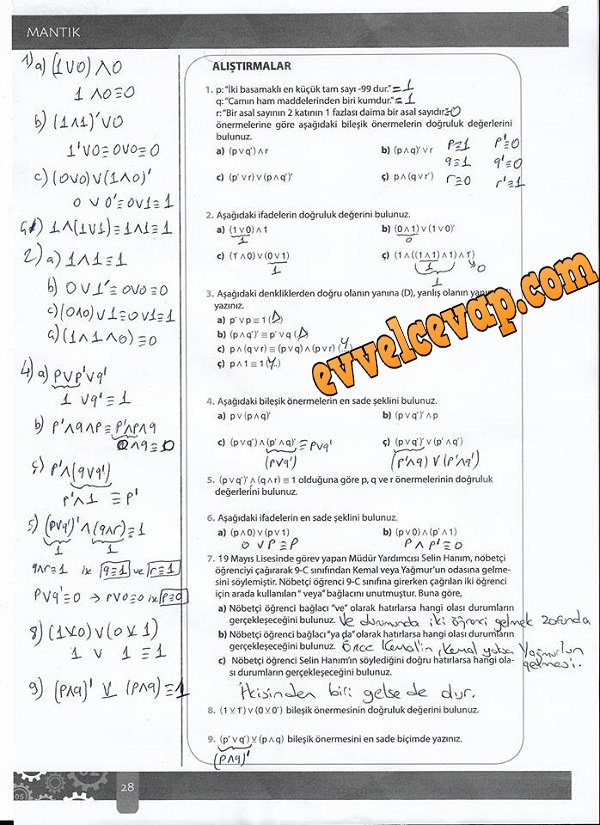 MANTIK
1) a) (1∨0)∧0
1∧0≡0
b) (1∧1)'∨0
1'∨0≡0∨0≡0
c) (0∨0)∨(1∧0)'
0∨0'≡0∨1≡1
ç) 1∧(1∨1)≡1∧1≡1
2) a) 1∧1≡1
b) 0∨1'≡0∨0≡0
c) (0∧0)∨1≡0∨1≡1
ç) (1∧1∧0)≡0
4) a) p∨p'∨q'
1∨q'≡1
b) p'∧q∧p≡p'∧p∧q
0∧q≡0
ç) p'∧(q∨q')
p'∧1≡p'
5) (p∨q')'∧(q∧r)≡1
1 1
q∧r≡1 ise q≡1 ve r≡1
p∨q'≡0 → p∨0≡0 ise p≡0
8) (1⊻0)∨(0⊻1)
1 ∨ 1≡1
9) (p∧q)' ⊻ (p∧q)≡1
ALIŞTIRMALAR
1. p: "İki basamaklı en küçük tam sayı -99 dur." = 1
q: "Camın ham maddelerinden biri kumdur." = 1
r: "Bir asal sayının 2 katının 1 fazlası daima bir asal sayıdır." = 0
önermelerine göre aşağıdaki bileşik önermelerin doğruluk değerlerini
bulunuz.
p≡1 p'≡0
a) (p∨q')∧r b) (p∧q)'∨r
q≡1 q'≡0
c) (p'∨r)∨(p∧q')' ç) p∧(q∨r')
r≡0 r'≡1
2. Aşağıdaki ifadelerin doğruluk değerini bulunuz.
a) (1∨0)∧1 b) (0∧1)∨(1∨0)'
1 0
c) (1'∧0)∨(0∨1) ç) (1∧((1∧1)∧1)∧1')
1 1 0
1
3. Aşağıdaki denkliklerden doğru olanın yanına (D), yanlış olanın yanına
yazınız.
a) p'∨p≡1 (D)
b) (p∧q')'≡p'∨q (D)
c) p∧(q∨r)≡(p∨q)∧(p∨r) (Y)
ç) p∧1≡1 (Y)
evvelcevap.com
4. Aşağıdaki bileşik önermelerin en sade şeklini bulunuz.
a) p∨(p∧q)' b) (p∨q')'∧p
c) (p∨q')∧(p'∧q)' ≡ p∨q' ç) (p∨q')'∨(p'∧q')
(p∨q') (p'∧q)∨(p'∧q')
5. (p∨q')'∧(q∧r)≡1 olduğuna göre p, q ve r önermelerinin doğruluk
değerlerini bulunuz.
6. Aşağıdaki ifadelerin en sade şeklini bulunuz.
a) (p∧0)∨(p∨1) b) (p∨0)∧(p'∧1)
0∨p≡p p∧p'≡0
7. 19 Mayıs Lisesinde görev yapan Müdür Yardımcısı Selin Hanım, nöbetçi
öğrenciyi çağırarak 9-C sınıfından Kemal veya Yağmur'un odasına gelme-
sini söylemiştir. Nöbetçi öğrenci 9-C sınıfına girerken çağrılan iki öğrenci
için arada kullanılan " veya" bağlacını unutmuştur. Buna göre,
a) Nöbetçi öğrenci bağlacı "ve" olarak hatırlarsa hangi olası durumların
gerçekleşeceğini bulunuz. Ve durumunda iki öğrenci gelmek zorunda
b) Nöbetçi öğrenci bağlacı "ya da" olarak hatırlarsa hangi olası durumların
gerçekleşeceğini bulunuz. Kemal'in, Kemal yoksa Yağmur'un
gelmesi.
c) Nöbetçi öğrenci Selin Hanım'ın söylediğini doğru hatırlarsa hangi ola-
sı durumların gerçekleşeceğini bulunuz.
İkisinden biri gelse de dur.
8. (1⊻1')∨(0⊻0') bileşik önermesinin doğruluk değerini bulunuz.
9. (p'∨q')⊻(p∧q) bileşik önermesini en sade biçimde yazınız.
(p∧q)'
28